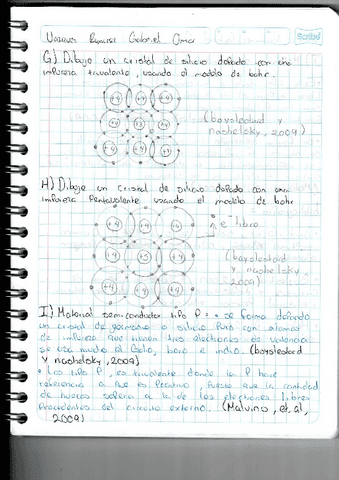 Gabriel Omar
Scribe
G) Dibuje un cristal de silicio dopado con una
impureza trivalente, usando el modelo de bohr.
+4 +4 +4
+4 +4
+4 +4 +4
(boyslestad y
nashelsky, 2009)
H) Dibuje un cristal de silicio dopado con una
impureza Pentavalente usando el modelo de bohr
+4 +4 +4
e- libre
+4 +5 +4
+4 +4 +4
(boylestad
y nashelsky,
2009)
I) Material semiconductor tipo P = • se forma dopando
un cristal de germanio o silicio Puro con atomos
de impureza que tienen tres electrones de valencia
se usa mucho el Galio, boro e indio (boyslestead
y nashelsky, 2009)
• Los tipo P, es trivalente donde la P hace
referencia a que es Positivo, Puesto que la cantidad
de huecos supera a la de los electrones libres
Procedentes del circuito externo. (Malvino, et. al,
2009)